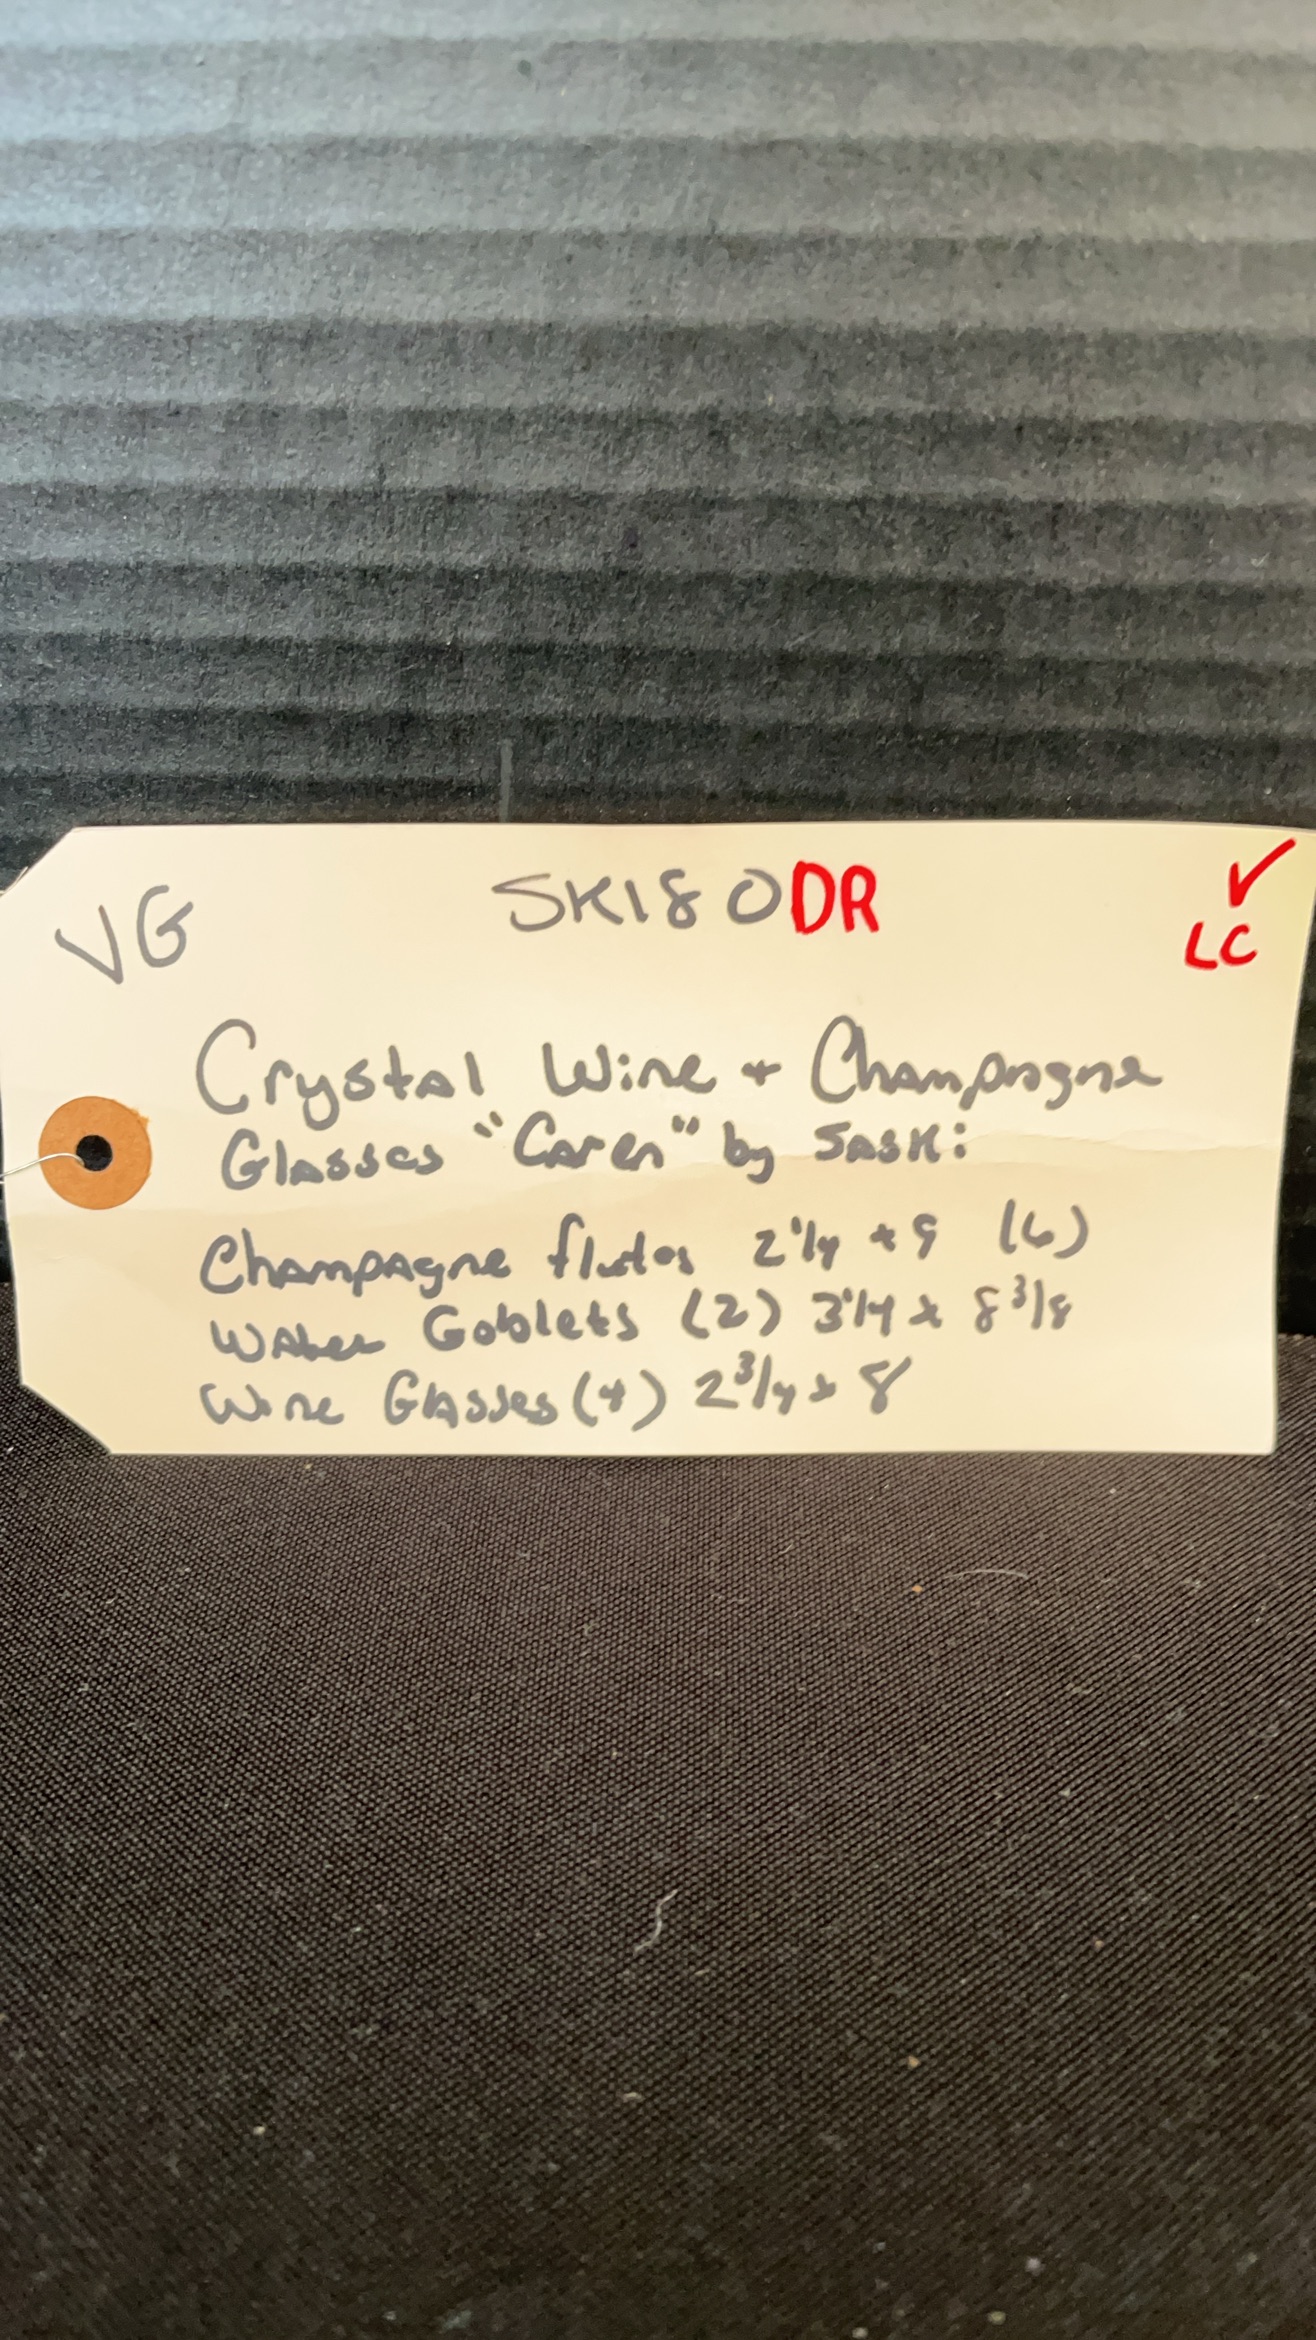 VG SK180DR ✓
LC
Crystal Wine + Champagne
Glasses "Caren" by Saski
Champagne flutes 2 1/4 x 9 (6)
Water Goblets (2) 3 1/4 x 8 3/8
Wine Glasses (4) 2 3/4 x 8